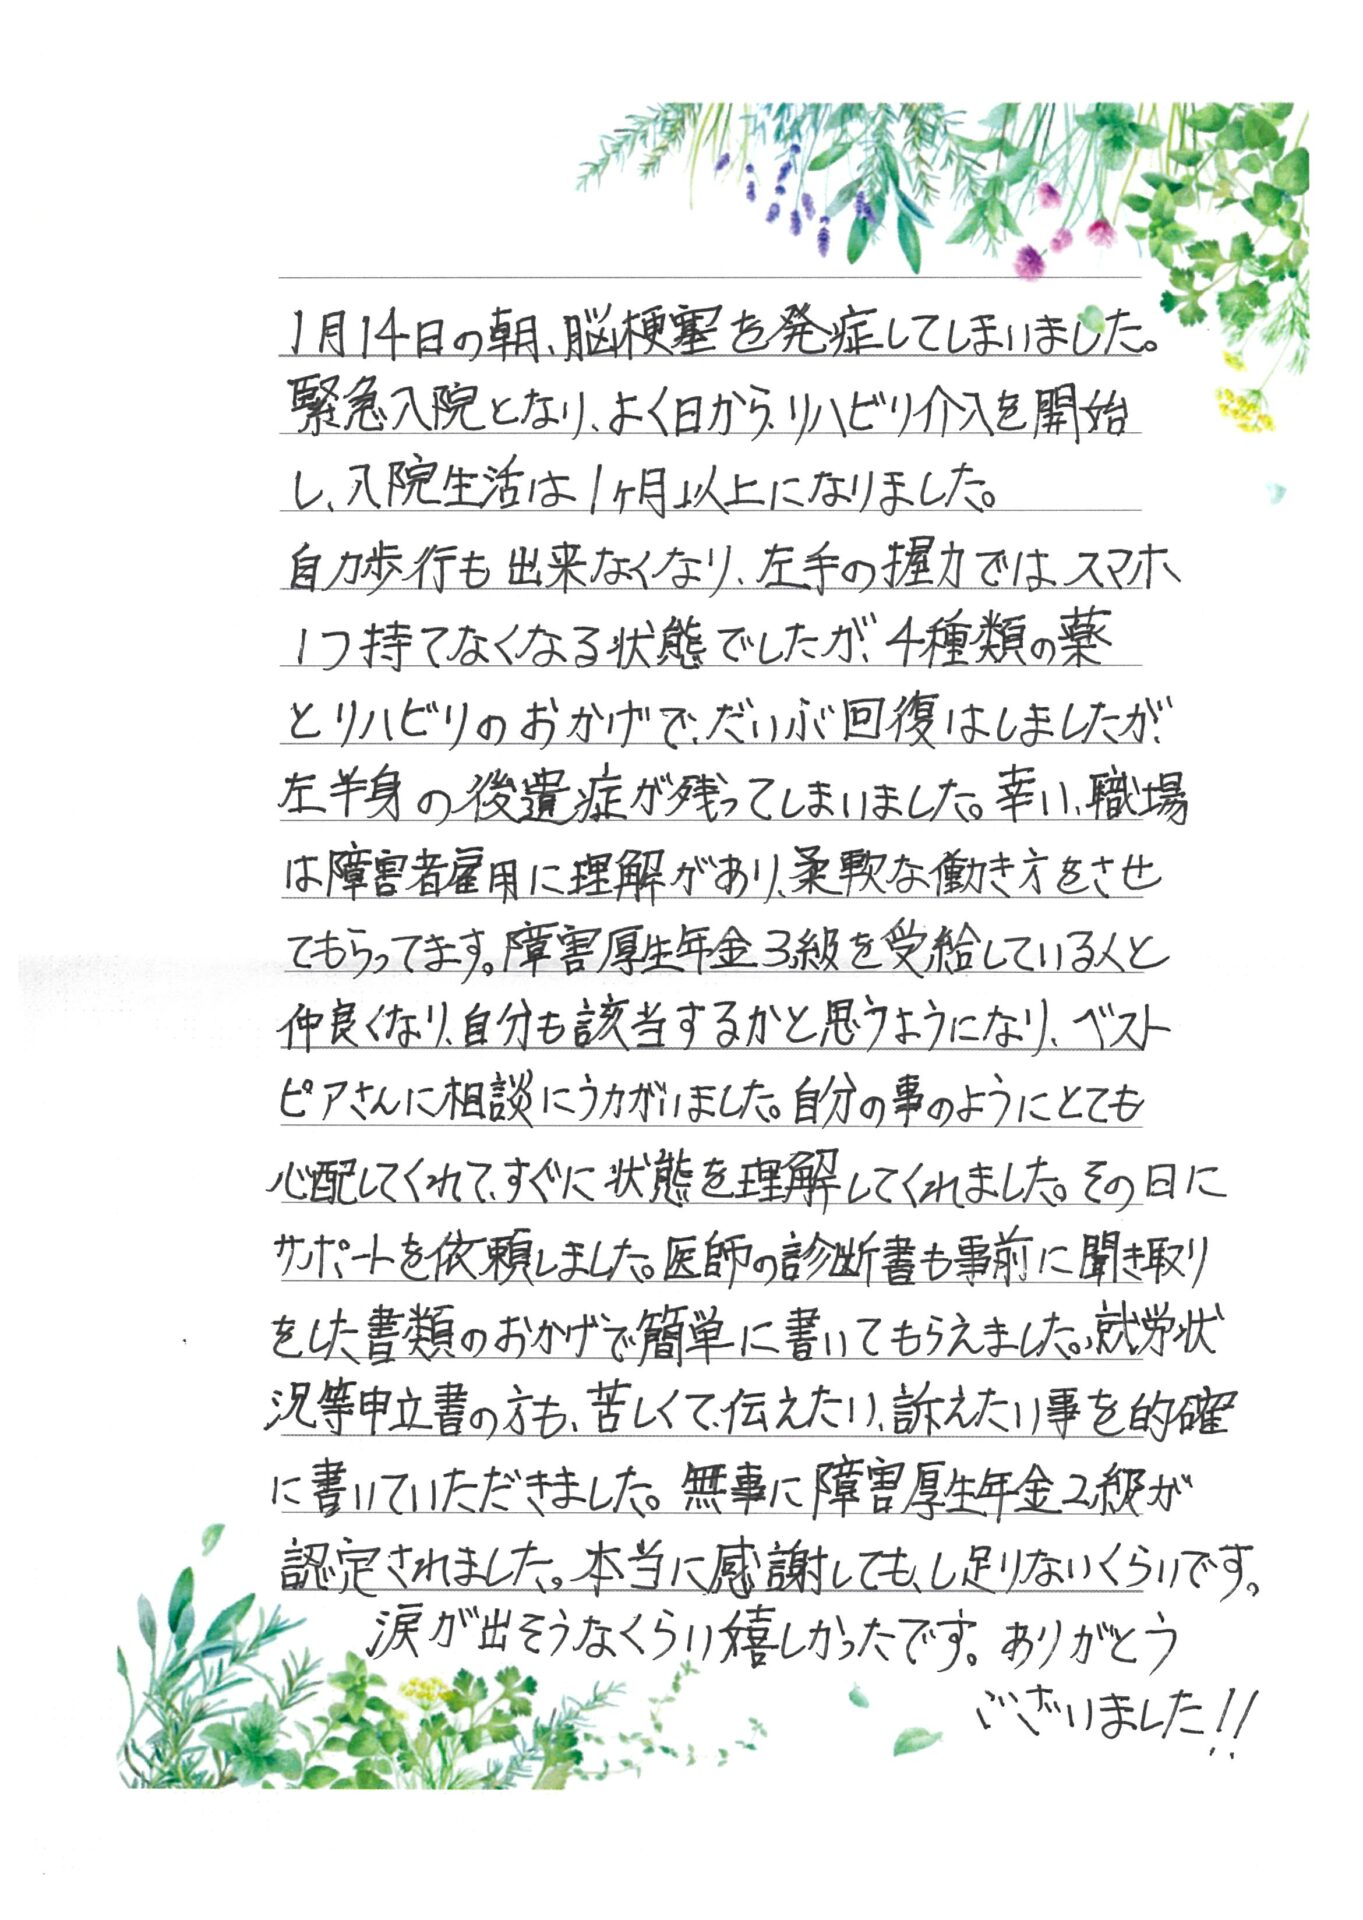 1月14日の朝、脳梗塞を発症してしまいました。
緊急入院となり、よく日から、リハビリ介入を開始
し、入院生活は1ヶ月以上になりました。
自力歩行も出来なくなり、左手の握力では、スマホ
1つ持てなくなる状態でしたが、4種類の薬
とリハビリのおかげで、だいぶ回復はしましたが、
左半身の後遺症が残ってしまいました。幸い、職場
は障害者雇用に理解があり、柔軟な働き方をさせ
てもらってます。障害厚生年金3級を受給している人と
仲良くなり、自分も該当するかと思うようになり、ベスト
ピアさんに相談にうかがいました。自分の事のようにとても
心配してくれて、すぐに状態を理解してくれました。その日に
サポートを依頼しました。医師の診断書も事前に聞き取り
をした書類のおかげで簡単に書いてもらえました。就労状
況等申立書の方も、苦しくて、伝えたい、訴えたい事を的確
に書いていただきました。無事に障害厚生年金2級が
認定されました。本当に感謝しても、し足りないくらいです。
涙が出そうなくらい嬉しかったです。ありがとう
ございました!!